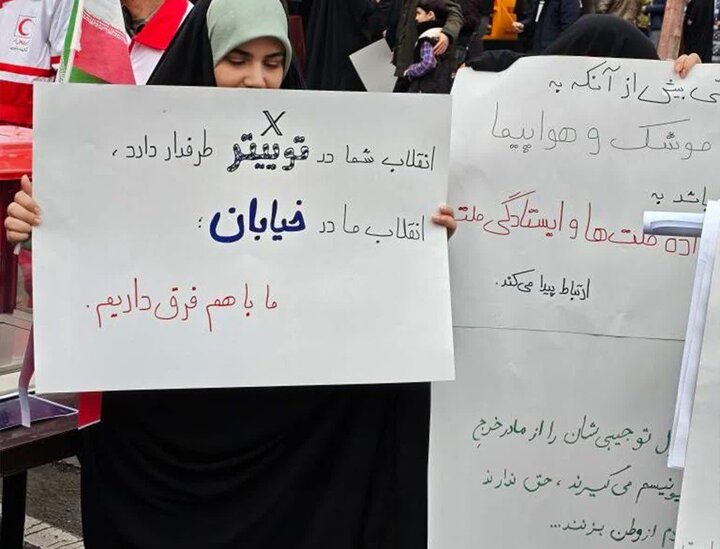 X
انقلاب شما در توییتر طرفدار دارد،
انقلاب ما در خیابان؛
ما با هم فرق داریم.
بیش از آنکه به
موشک و هواپیما
باشد به
اراده ملت‌ها و ایستادگی ملت
ارتباط پیدا می‌کند.
توجیبی‌شان را از مادر خرج
می‌گیرند، حق ندارند
از وطن بزنند...